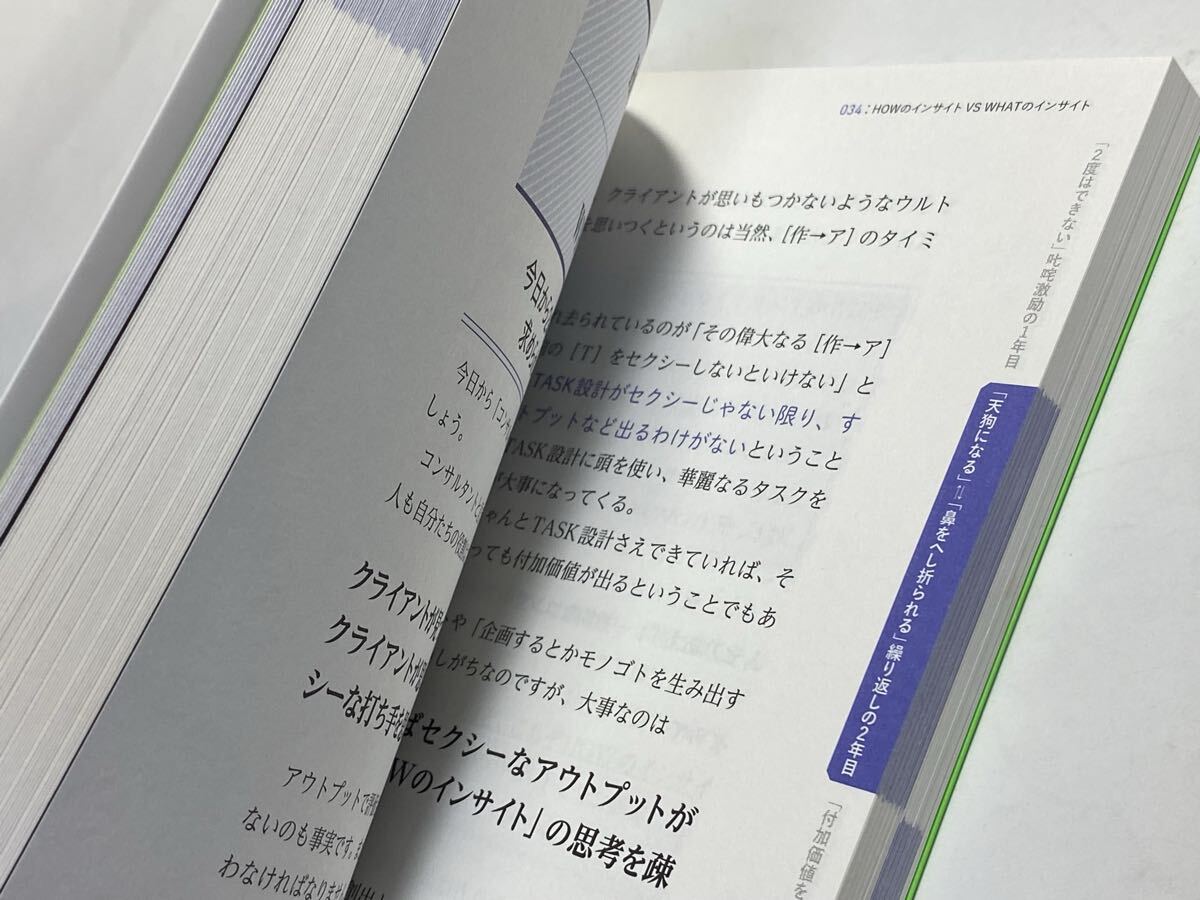 034：HOWのインサイト VS WHATのインサイト
クライアントが思いもつかないようなウルト
を思いつくというのは当然、[作→ア] のタイミ
去られているのが「その偉大なる [作→ア]
の [T] をセクシーしないといけない」と
TASK設計がセクシーじゃない限り、す
トプットなど出るわけがないということ
TASK設計に頭を使い、華麗なるタスクを
大事になってくる。
ゃんとTASK設計さえできていれば、そ
っても付加価値が出るということでもあ
や「企画するとかモノゴトを生み出す
しがちなのですが、大事なのは
ばセクシーなアウトプットが
Wのインサイト」の思考を疎
「2度はできない」叱咤激励の1年目
「天狗になる」⇅「鼻をへし折られる」繰り返しの2年目
「付加価値を
今日から
求め
今日から「コン
しょう。
コンサルタント
人も自分たちの
クライアントが
クライアントが
シーな打ち手を
アウトプットで
ないのも事実です。
わなければなりませ